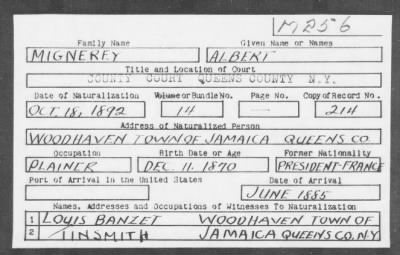 M256
Family Name Given Name or Names
MIGNEREY ALBERT
Title and Location of Court
COUNTY COURT QUEENS COUNTY N.Y.
Date of Naturalization Volume or Bundle No. Page No. Copy of Record No.
OCT. 18, 1892 14 — 214
Address of Naturalized Person
WOODHAVEN TOWN OF JAMAICA QUEENS CO.
Occupation Birth Date or Age Former Nationality
PLAINER DEC. 11. 1870 PRESIDENT-FRANCE
Port of Arrival in the United States Date of Arrival
JUNE 1885
Names, Addresses and Occupations of Witnesses To Naturalization
1 LOUIS BANZET WOODHAVEN TOWN OF
2 TINSMITH JAMAICA QUEENS CO. N.Y